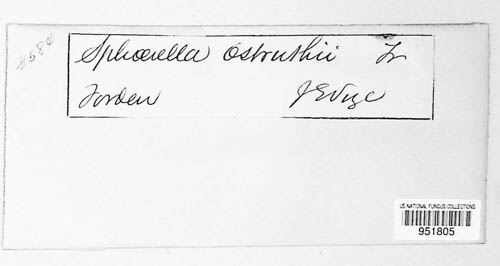 Sphaerella Ostruthii Fr
Forden J E Vize
US NATIONAL FUNGUS COLLECTIONS
951805